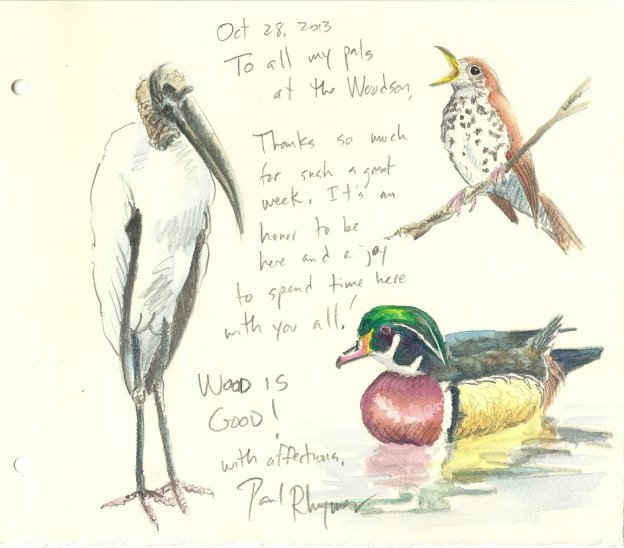 Oct 28, 2013
To all my pals
at the Woodson,
Thanks so much
for such a great
week. It's an
honor to be
here and a joy
to spend time here
with you all!
WOOD IS
GOOD!
with affections,
Paul Rhymer